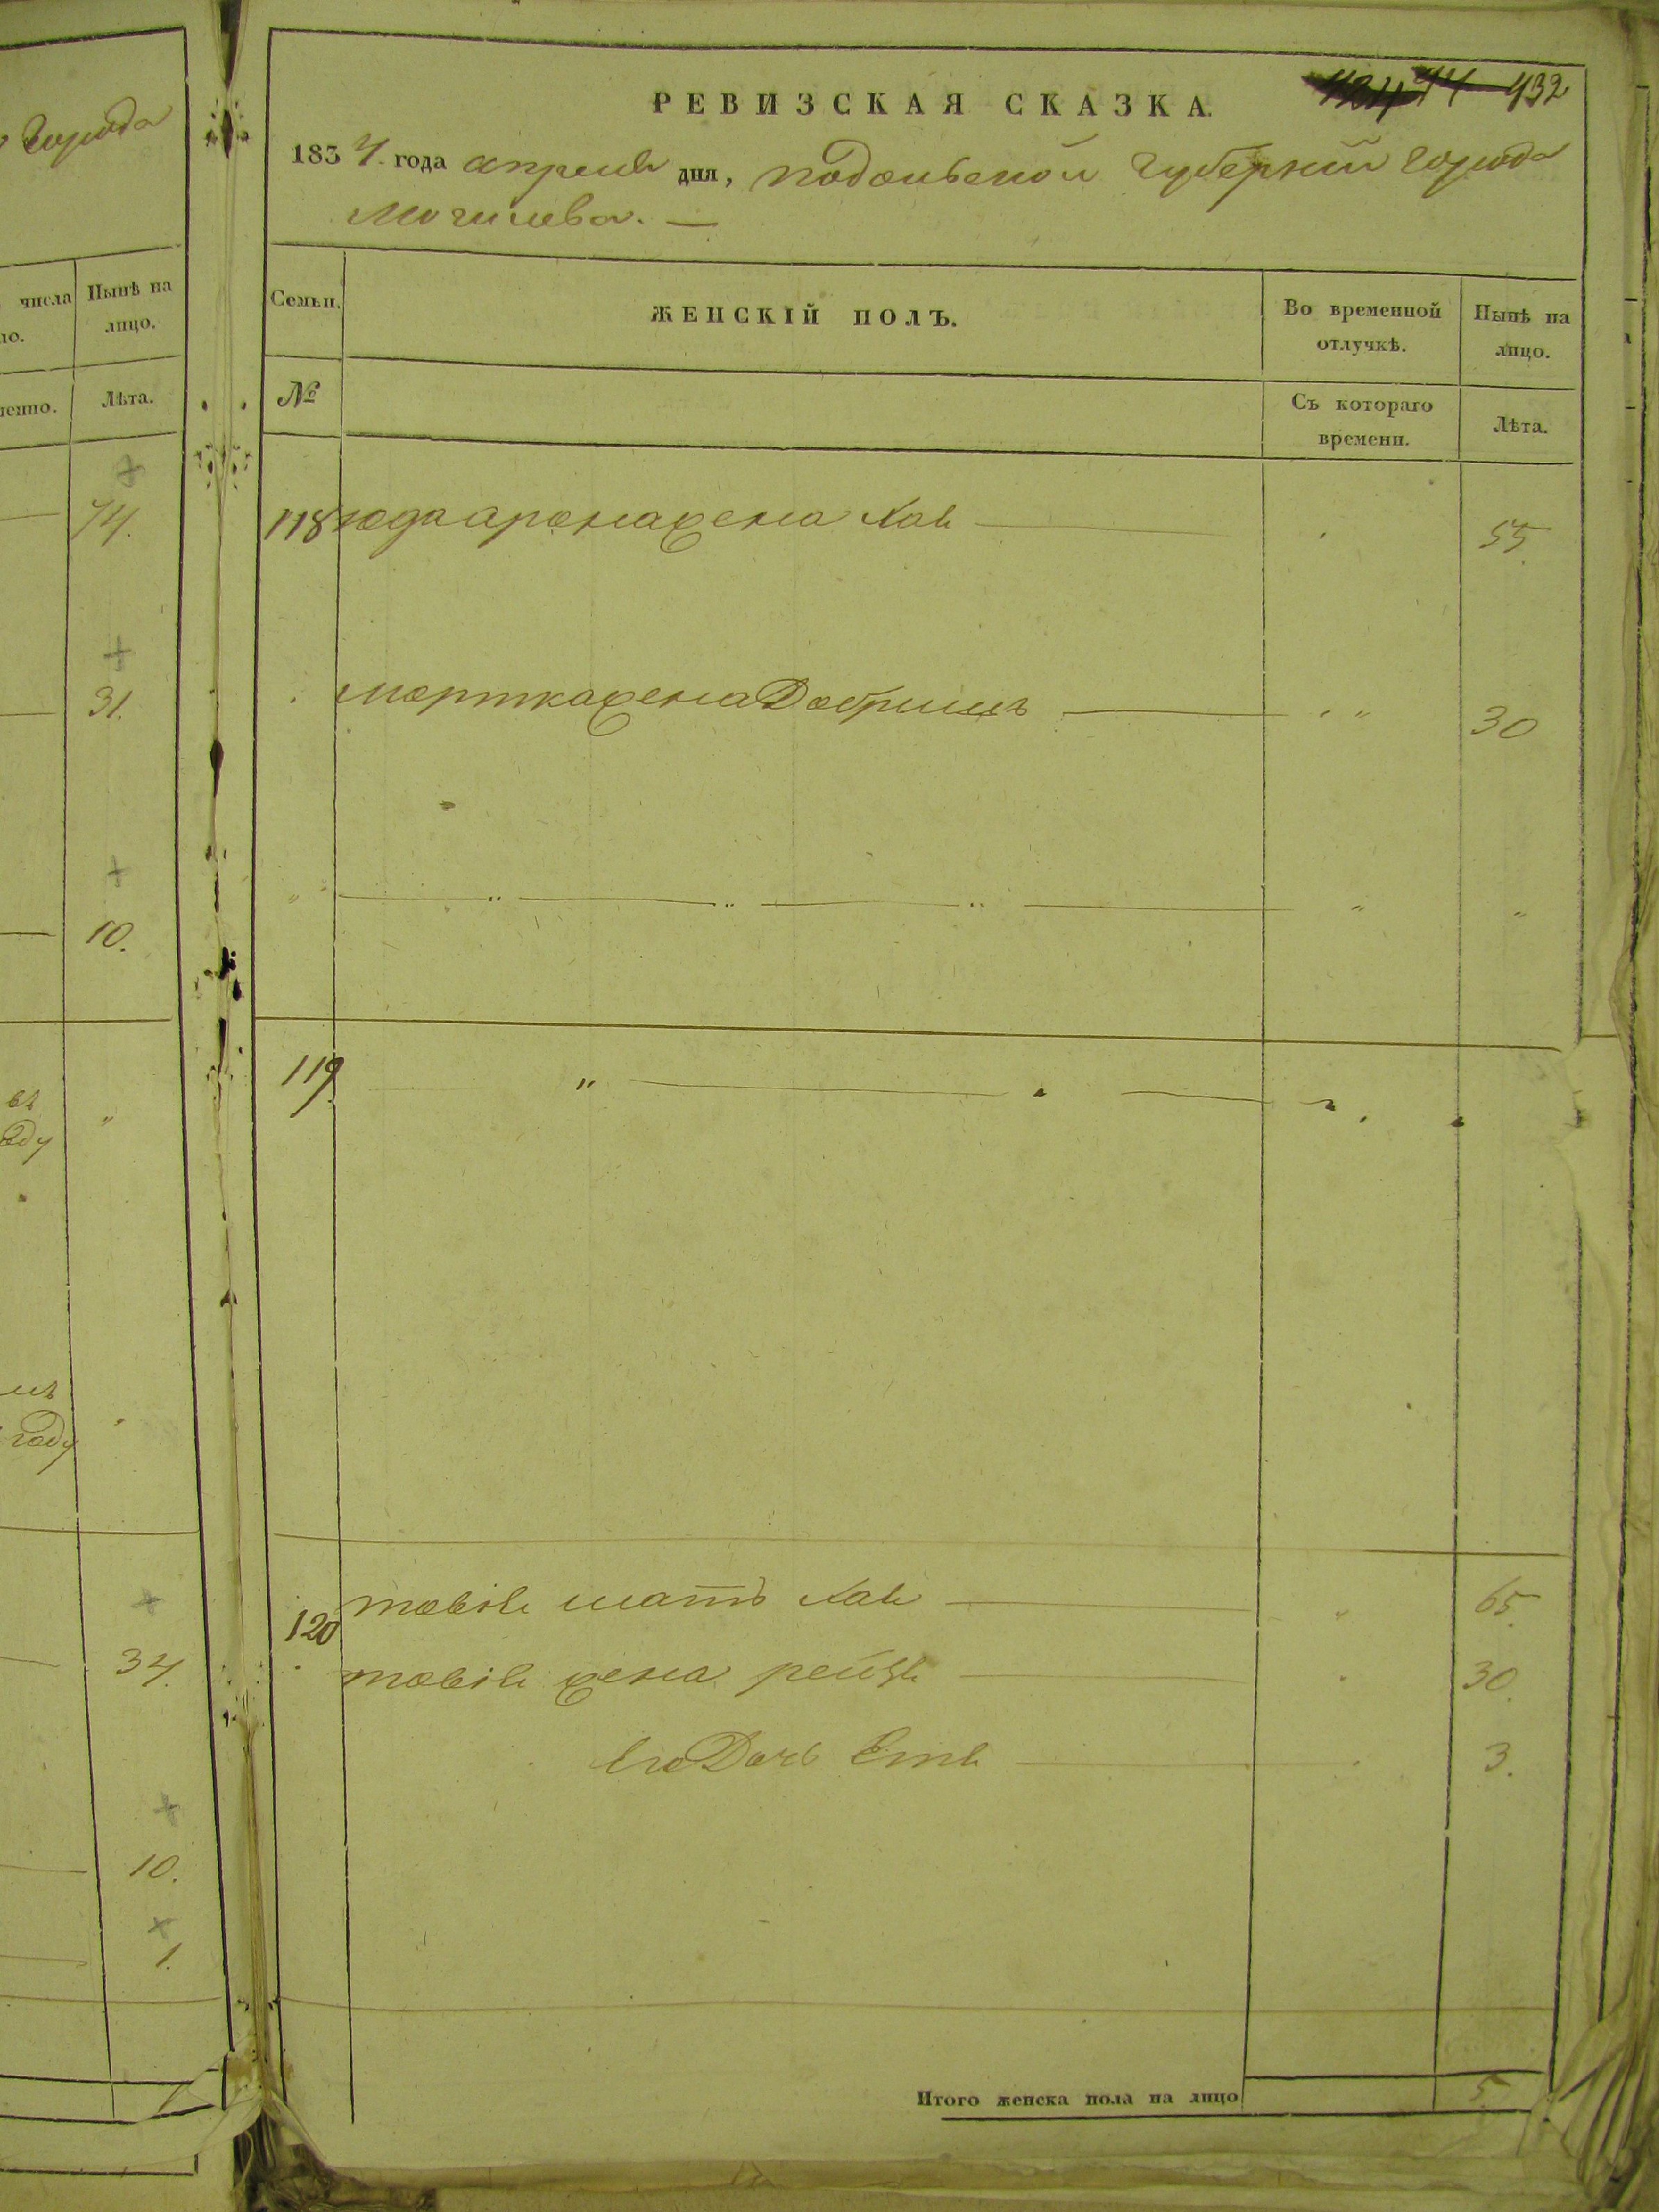 города
числа Нынѣ на
но. лицо.
Лѣта.
74.
31.
10.
въ
году
году
34.
10.
1.
432
РЕВИЗСКАЯ СКАЗКА.
1834. года апреля дня, подольской губернии города
Могилева. —
Семьи. ЖЕНСКІЙ ПОЛЪ. Во временной Нынѣ на
отлучкѣ. лицо.
№ Съ котораго Лѣта.
времени.
118 юда арона жена хая 55.
мортка жена Добришъ 30
119
120 мать хая 65.
жена рейзя 30.
его Дочь Етя 3.
Итого женска пола на лицо 5.